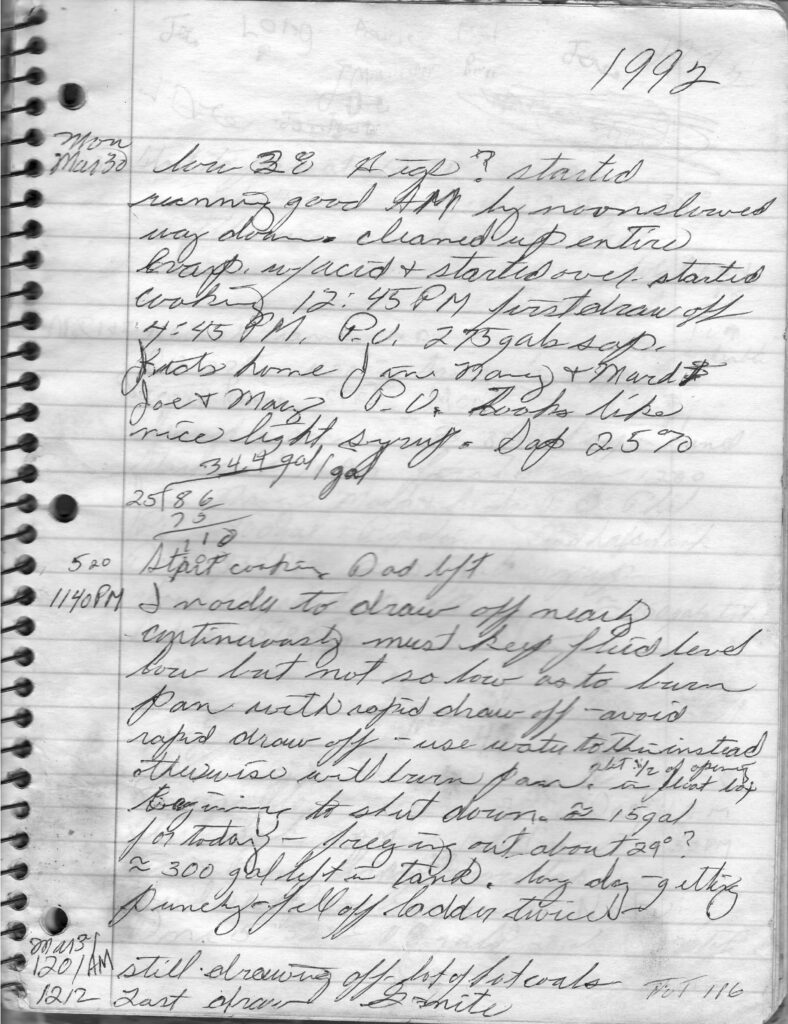 1992
Mon
Mar 30
low 38 Highs ? started
running good AM by noon slowed
way down. cleaned up entire
Evap. w/acid + started over. started
cooking 12:45 PM first draw off
4:45 PM. P.U. 275 gals sap.
home Jim Nancy + Mard
Joe + Mary P.U. Looks like
nice light syrup. Sap 2.5%
34.4 gal/gal
25 86
75
110
520 Start cooking. Dad left
1140PM I norder to draw off nearly
continuously must keep fluid level
low but not so low as to burn
pan with rapid draw off - avoid
rapid draw off - use water to thin instead
otherwise will burn pan. abt 1/2 of opening
in float box
Beginning to shut down. ≈ 15 gal
for today - freezing out about 29°?
≈ 300 gal left in tank. long day - getting
punchy - fell off ladder twice -
Mar 31
1201 AM still drawing off - lot of hot coals
1212 Last draw G-nite
TOT 116